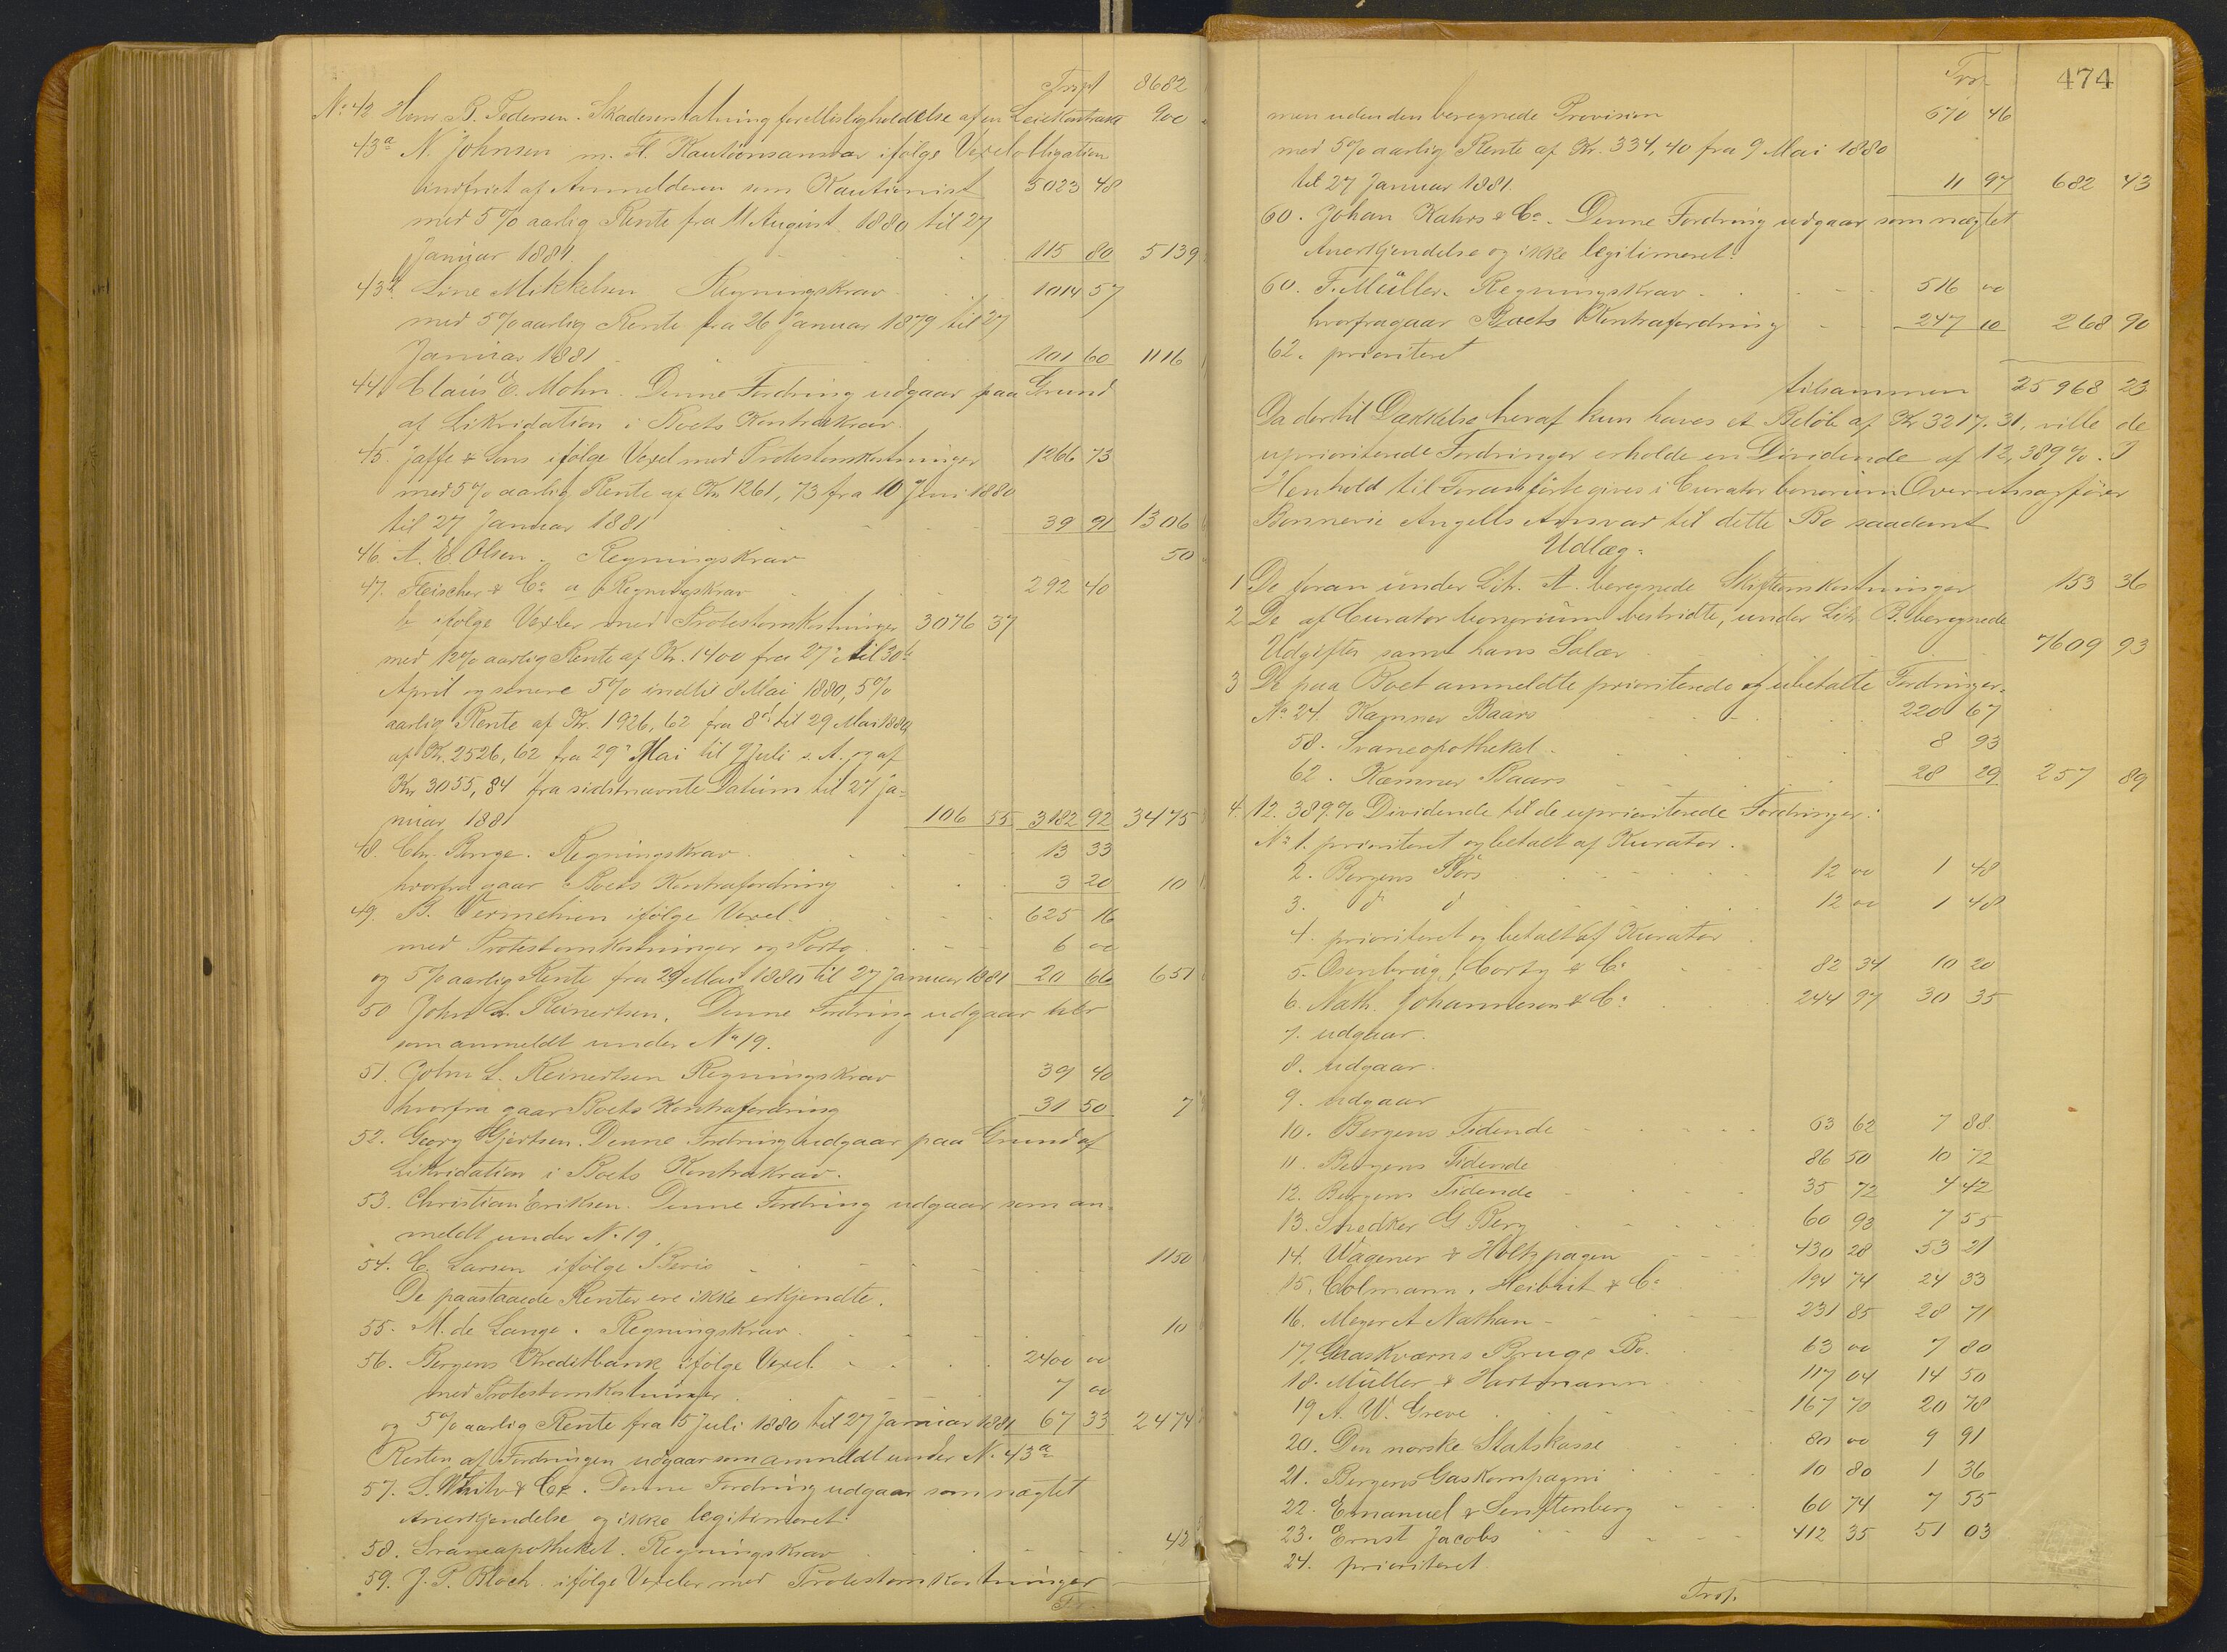 Trspt 8682
No 42 Hans B. Pedersen. Skadeserstatning for Misligholdelse af en Leiekontrakt 900
43a N. Johnsen m. Fl. Kautionsansvar ifølge Vexelobligation
indfriet af Anmelderen som Kautionist 5023 48
med 5% aarlig Rente fra 11 August 1880 til 27
Januar 1881. 115 80 5139
43b Line Mikkelsen Regningskrav 1014 57
med 5% aarlig Rente fra 26 Januar 1879 til 27
Januar 1881 101 60 1116
44. Claus E. Mohn. Denne Fordring udgaar paa Grund
af Likvidation i Boets Kontrakrav.
45. Jaffe & Sons ifølge Vexel med Protestomkostninger 1266 73
med 5% aarlig Rente af Kr 1261,73 fra 10 Juni 1880
til 27 Januar 1881 39 91 1306
46. A. E. Olsen. Regningskrav 50
47. Fleischer & Co a, Regningskrav 292 40
b ifølge Vexler med Protestomkostninger 3076 37
med 12% aarlig Rente af Kr. 1400 fra 27de til 30te
April og senere 5% indtil 8 Mai 1880, 5%
aarlig Rente af Kr. 1926,62 fra 8de til 29 Mai 1880,
af Kr. 2526,62 fra 29de Mai til 9 Juli s. A. og af
Kr 3055,84 fra sidstnævnte Datum til 27 Ja-
nuar 1881 106 55 3182 92 3475
48. Chr. Berge. Regningskrav 13 33
hvorfra gaar Boets Kontrafordring 3 20 10
49. B. Vermehren ifølge Vexel 625 16
med Protestomkostninger og Porto 6 00
og 5% aarlig Rente fra 29 Mai 1880 til 27 Januar 1881 20 66 651
50 John L. Reinertsen. Denne Fordring udgaar her
som anmeldt under No 19.
51. John L. Reinertsen Regningskrav 39 40
hvorfra gaar Boets Kontrafordring 31 50 7
52. Georg Gjertsen. Denne Fordring udgaar paa Grund af
Likvidation i Boets Kontrakrav.
53. Christian Eriksen. Denne Fordring udgaar som an-
meldt under No 19.
54. C. Larsen ifølge Bevis 1150
De paastaaede Renter ere ikke erkjendte.
55. M. de Lange. Regningskrav 10
56. Bergens Kreditbank ifølge Vexel 2400 00
med Protestomkostninger 7 00
og 5% aarlig Rente fra 5 Juli 1880 til 27 Januar 1881 67 33 2474
Resten af Fordringen udgaar som anmeldt under No. 43a
57. S. White & Co. Denne Fordring udgaar som nægtet
Anerkjendelse og ikke legitimeret.
58. Svaneapotheket. Regningskrav 42
59. J. P. Bloch ifølge Vexeler med Protestomkostninger
Tr.
Trsp. 474
men uden den beregnede Provision 670 46
med 5% aarlig Rente af Kr. 334,40 fra 9 Mai 1880
til 27 Januar 1881. 11 97 682 43
60. Johan Kahrs & Co. Denne Fordring udgaar som nægtet
Anerkjendelse og ikke legitimeret.
60. F. Müller. Regningskrav 516 00
hvorfra gaar Boets Kontrafordring 247 10 268 90
62. prioriteret
tilsammen 25 968 23
Da der til Dækkelse heraf kun haves et Beløb af Kr 3217.31, ville de
uprioriterede Fordringer erholde en Dividende af 12,389%. I
Henhold til Foranførte gives i Curator bonorum Overretssagfører
Bonnevie Angells Ansvar til dette Bo saadant
Udlæg:
1 De foran under Litr. A. beregnede Skifteomkostninger 153 36
2 De af Curator bonorium bestridte, under Litr B. beregnede
Udgifter samt hans Salær 7609 93
3 De paa Boet anmeldte prioriterede og ubetalte Fordringer.
No 24. Kæmner Baars 220 67
58. Svaneapotheket 8 93
62. Kæmner Baars 28 29 257 89
4. 12.389% Dividende til de uprioriterede Fordringer:
No 1. prioriteret og betalt af Kurator.
2. Bergens Børs 12 00 1 48
3. do do 12 00 1 48
4. prioriteret og betalt af Kurator
5. Osenbrüg, Corty & Co 82 34 10 20
6. Nath. Johannesen & Co 244 97 30 35
7. udgaar.
8. udgaar.
9. udgaar
10. Bergens Tidende 63 62 7 88
11. Bergens Tidende 86 50 10 72
12. Bergens Tidende 35 72 4 42
13. Snedker G Berg 60 93 7 55
14. Wagener & Holtzpagen 430 28 53 21
15. Colmann, Heibhit & Co 194 74 24 33
16. Meyer A Nathan 231 85 28 71
17. Graaskværns Brugs Bo. 63 00 7 80
18. Müller & Hartmann 117 04 14 50
19 A. W. Greve 167 70 20 78
20. Den norske Statskasse 80 00 9 91
21. Bergens Gaskompagni 10 80 1 36
22. Emanuel & Senftenberg 60 74 7 55
23. Ernst Jacobs 412 35 51 03
24. prioriteret
Trsp.